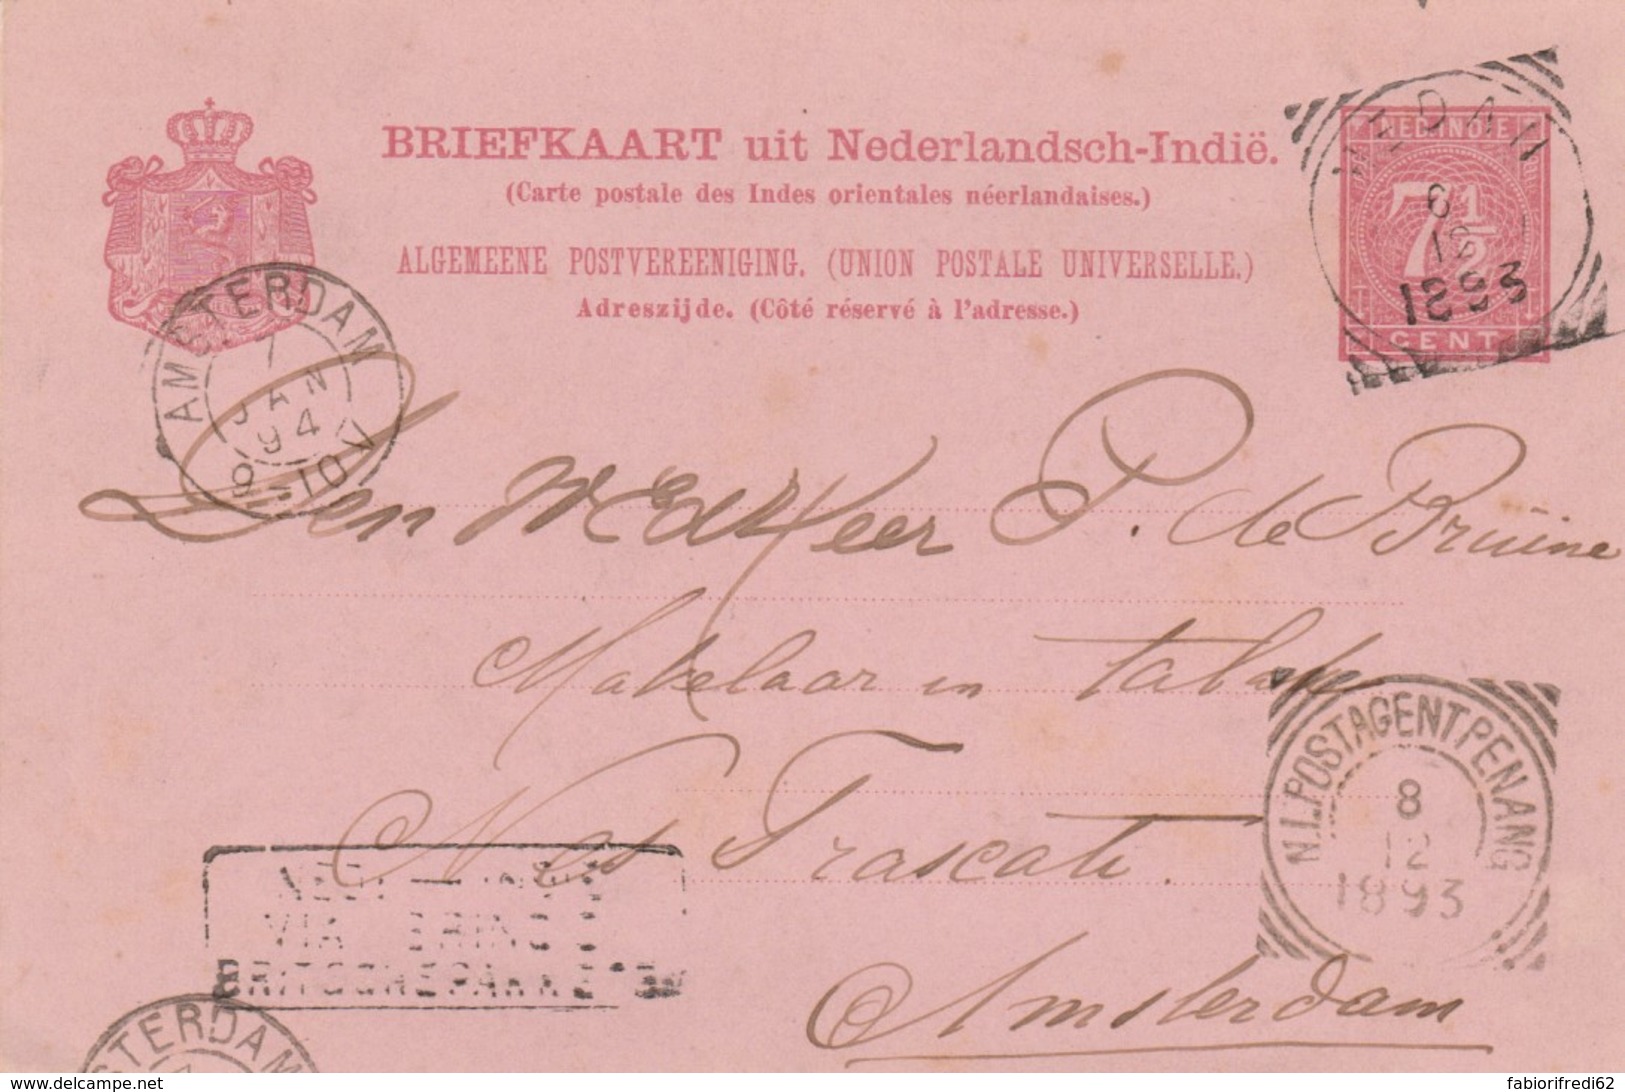 BRIEFKAART uit Nederlandsch-Indië.
(Carte postale des Indes orientales néerlandaises.)
ALGEMEENE POSTVEREENIGING. (UNION POSTALE UNIVERSELLE.)
Adreszijde. (Côté réservé à l'adresse.)
NED. INDIE
7½
CENT
MEDAN
6
12
1893
AMSTERDAM
7
JAN
94
9-10V
Den WEdHeer P. de Bruine
Makelaar in tabak
Nes Frascati.
Amsterdam
N.I. POSTAGENT PENANG
8
12
1893
NED.-INDIE
VIA BRIND
AMSTERDAM
www.delcampe.net
fabiorifredi62